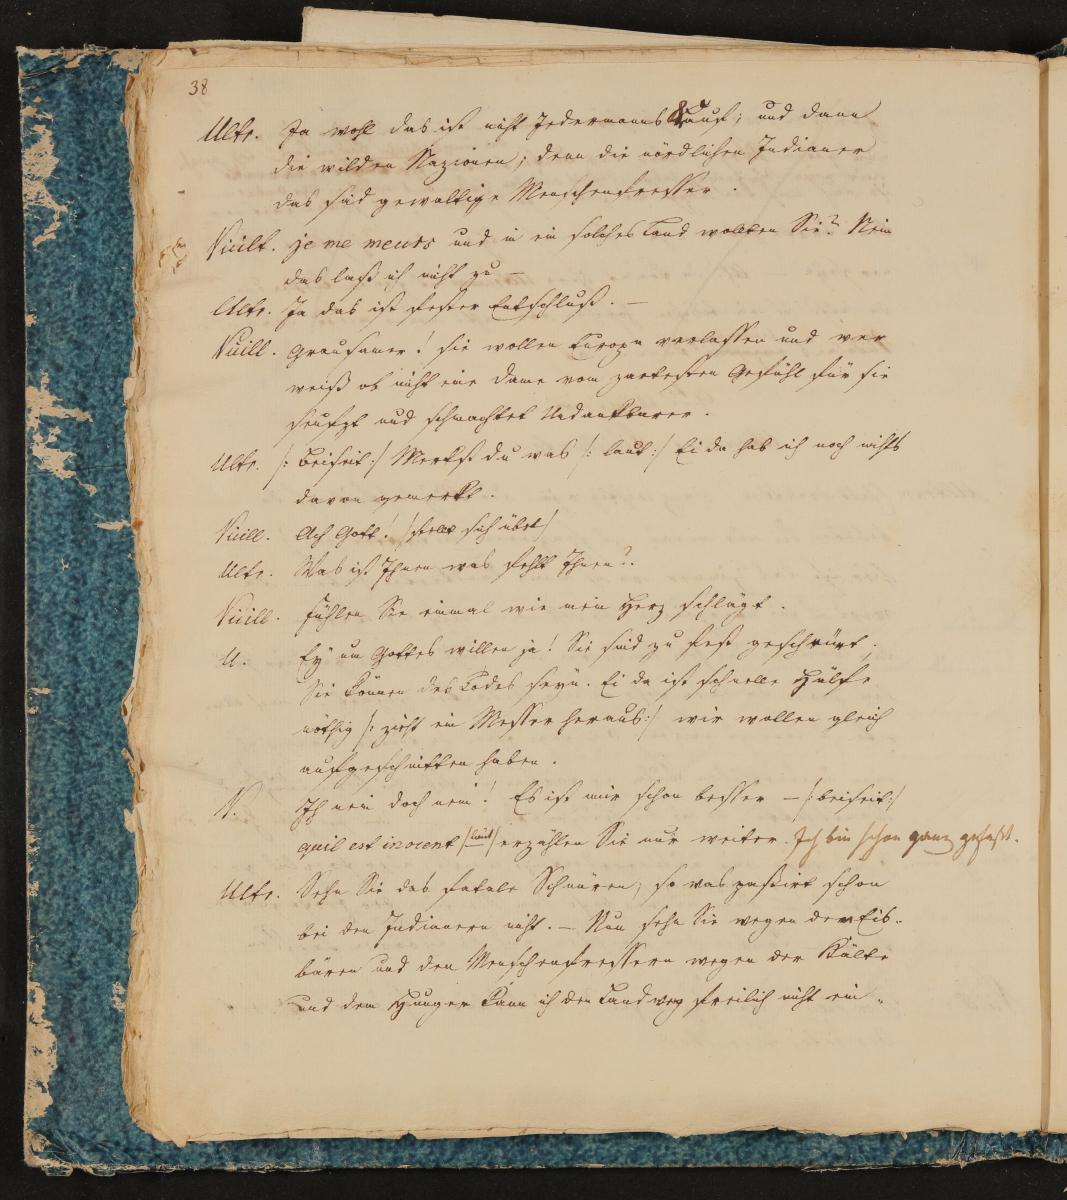 38
Ulke. Ja wohl das ist nicht Jedermanns Kauf; und dann
die wilden Nazionen; denn die nördlichen Indianer
das sind gewaltige Menschenfresser.
Vieill. je me meurs und in ein solches Land wollten Sie? Nein
das laß ich nicht zu –
Ulke. Ja das ist fester Entschluß. –
Vieill. Grausamer! sie wollen Europa verlassen und wer
weiß ob nicht eine Dame vom zartesten Gefühl für sie
seufzt und schmachtet Undankbarer.
Ulke. /: beiseit :/ Merkst du was /: laut :/ Ei da hab ich noch nichts
davon gemerkt.
Vieill. Ach Gott! / stellt sich übel /
Ulke. Was ist Ihnen was fehlt Ihnen?
Vieill. Fühlen Sie einmal wie mein Herz schlägt.
U. Ey um Gottes willen ja! Sie sind zu fest geschnürt.
Sie können des Todes seyn. Ei da ist schnelle Hülfe
nöthig /: zieht ein Messer heraus :/ wir wollen gleich
aufgeschnitten haben.
V. Ih nein doch nein! Es ist mir schon besser – /: beiseit :/
quil est inocent / laut / erzählen Sie nur weiter. Ich bin schon ganz gefaßt.
Ulke. Sehn Sie das fatale Schnüren, so was passirt schon
bei den Indianern nicht. – Nun sehn Sie wegen den Eis-
bären und den Menschenfressern wegen der Kälte
und dem Hunger kann ich den Landweg freilich nicht ein-